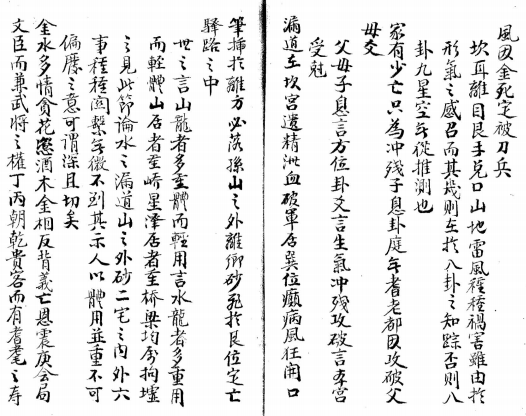 風因金死定被刀兵
坎耳離目艮手兌口山地雷風種種禍害雖由於
形氣之感召而其幾則在於八卦之知踪否則八
卦九星空無從推測也
家有少亡只為冲殘子息卦庭無耆老都因攻破父
母爻
父母子息言方位卦爻言生氣冲殘攻破言本宮
受尅
漏道在坎宮遺精泄血破軍居巽位癲病風狂開口
筆插於離方必落孫山之外離鄉砂飛於艮位定亡
驛路之中
世之言山龍者多重體而輕用言水龍者多重用
而輕體山居者至嶠星澤居者至橋梁均多拘墟
之見此節論水之漏道山之外砂二宅之內外六
事種種關繫無微不列其示人以體用並重不可
偏廢之意可謂深且切矣
金水多情貪花戀酒木金相反背義亡恩震庚會局
文臣而兼武將之權丁丙朝乾貴客而有耆耄之壽